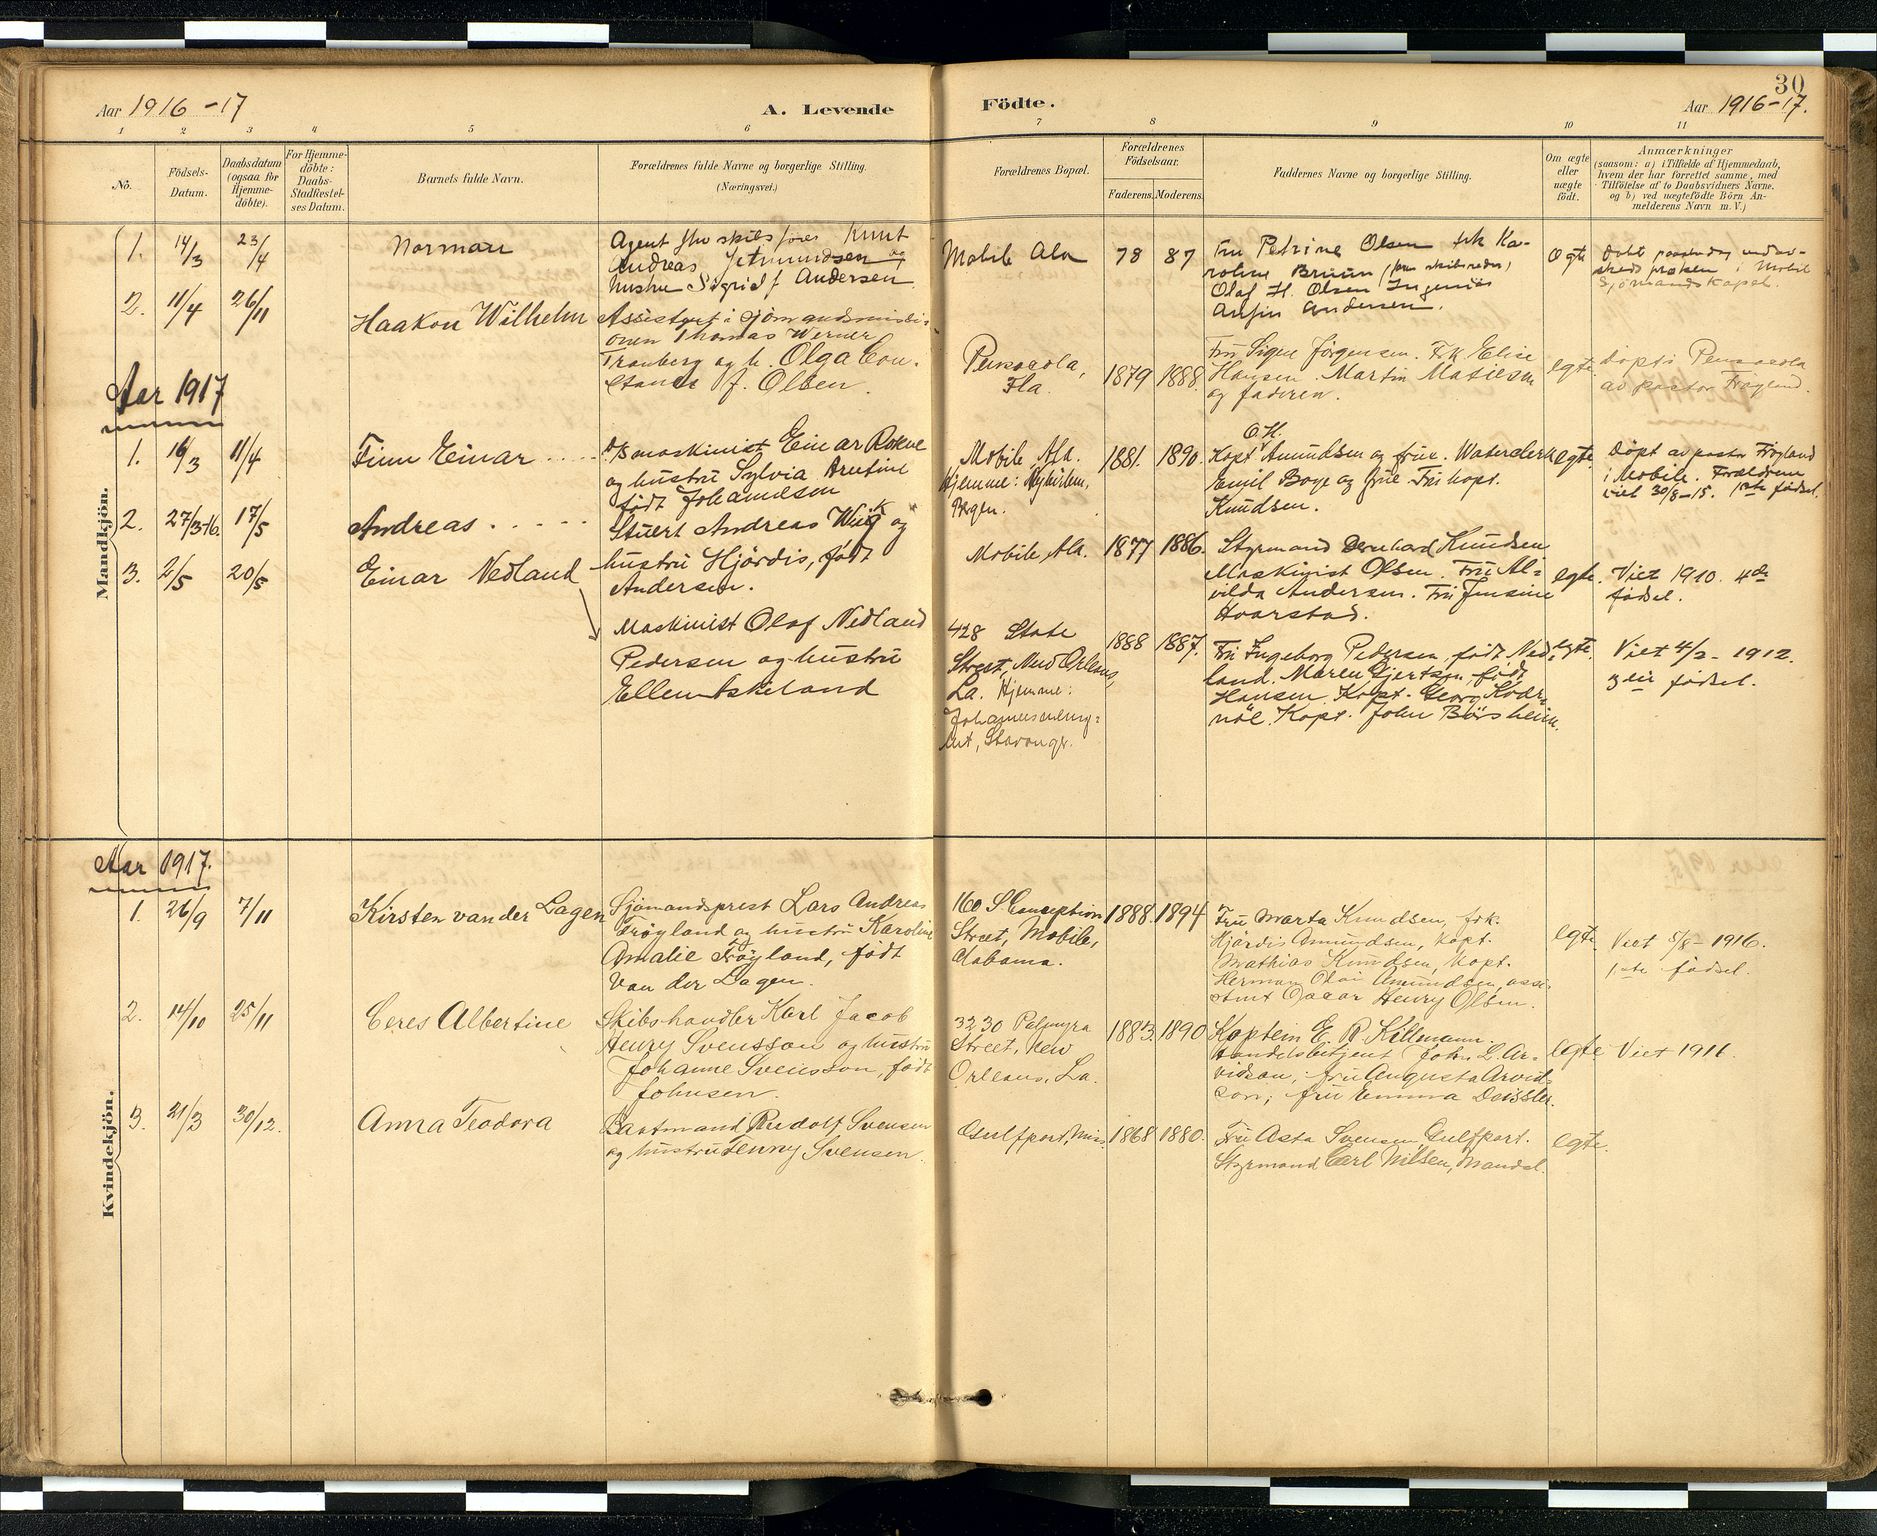 30
Aar 1916-17
A. Levende Födte.
Aar 1916-17.
1 2 3 4 5 6 7 8 9 10 11
No.
Födsels-
Datum.
Daabsdatum
(ogsaa for
Hjemme-
döbte).
For Hjemme-
döbte:
Daabs-
Stadfæstel-
ses Datum.
Barnets fulde Navn.
Forældrenes fulde Navne og borgerlige Stilling.
(Næringsvei.)
Forældrenes Bopæl.
Forældrenes
Födselsaar.
Faderens. Moderens.
Faddernes Navne og borgerlige Stilling.
Om ægte
eller
uægte
født.
Anmærkninger
(saasom: a) i Tilfælde af Hjemmedaab,
hvem der har forrettet samme, med
Tilföielse af to Daabsvidners Navne,
og b) ved uægtefödte Börn An-
melderens Navn m. V.)
Mandkjön.
1. 14/3 23/4
Norman
Agent skibsfører Knut
Andreas og
hustru Sigrid f Andersen.
Mobile Ala
78 87
Fru Petrine Olsen frk Ka-
roline Bruun (frue skibsreder)
Olaf H. Olsen Ingeniør
Andersen.
Ægte
i Mobil
Sjømandskapel.
2. 11/4 26/11
Haakon Wilhelm
Assistent i sjømandsmissi-
onen Thomas Werner
Tranberg og h. Olga Con-
stance f. Olsen.
Pensacola,
Fla.
1879 1888.
Fru Signe Jørgensen. Frk Elise
Hansen. Martin
og faderen.
egte.
Døpt i Pensacola
av pastor Frøyland.
Aar 1917
1. 16/3 11/4
Finn Einar .....
maskinist Einar
og hustru Sylvia
født Johannesen
Mobile, Ala.
Hjemme:
Bergen.
1881. 1890.
O.H.
Kapt Amundsen og frue.
Emil Boye og frue. Fru kapt.
Knudsen.
egte.
Døpt av pastor Frøyland
i Mobile. Forældrene
viet 30/8-15. 1ste fødsel.
2. 27/3 16. 17/5
Andreas. ....
Stuert Andreas og
hustru Hjördis, født
Andersen.
Mobile, Ala.
1877 1886.
Styrmand Bernhard Knudsen
Maskinist Olsen. Fru Al-
vilda Andersen. Fru Jensine
Hvarstad.
egte.
Viet 1910. 4de
fødsel.
3. 2/5 20/5
Einar Nedland
Maskinist Olaf Nedland
Pedersen og hustru
Ellen Askeland
428 State
Street, New Orleans,
La. Hjemme:
Stavanger.
1888 1887.
Fru Ingeborg Pedersen, født Ned-
land. Maren Gjertsen, født
Hansen. Kapt. Georg
Kapt. John Börsheim.
egte.
Viet 4/2 - 1912.
fødsel.
Kvindekjön.
Aar 1917.
1. 26/9 7/11
Kirsten van der Lagen
Sjømandsprest Lars Andreas
Frøyland og hustru Karoline
Amalie Frøyland, født
Van der Lagen.
160 S. Conception
Street, Mobile,
Alabama.
1888. 1894
Fru Marta Knudsen, frk.
Hjördis Amundsen, kapt.
Mathias Knudsen, kapt.
Herman Olai Amundsen, assi-
stent Oscar Henry Olsen.
egte
Viet 5/8 - 1916.
1ste fødsel.
2. 14/10 25/11
Ceres Albertine
Skibshandler Karl Jacob
Henry Svensson og hustru
Johanne Svensson, født
Johnsen.
3230 Palmyra
Street, New
Orleans, La.
1883. 1890
Kaptein E. R. Killmann.
Handelsbetjent John L. Ar-
vidson, fru Augusta Arvid-
son; fru Emma Deissler.
egte
Viet 1911.
3. 21/3 30/12.
Anna Teodora
Baatsmand Rudolf Svensen
og hustru Jenny Svensen.
Gulfport, Miss.
1868 1880.
Fru Asta Svensen, Gulfport.
Styrmand Carl Nilsen, Mandal.
egte.